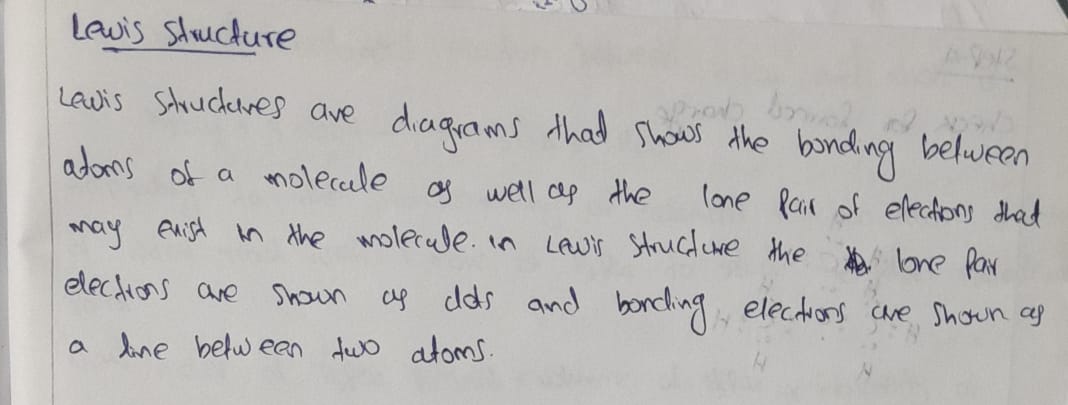 Lewis Structure
Lewis structures are diagrams that shows the bonding between
atoms of a molecule as well as the lone pair of elections that
may exist in the molecule. in Lewis Structure the lone pair
electrons are shown as dots and bonding electrons are shown as
a line between two atoms.